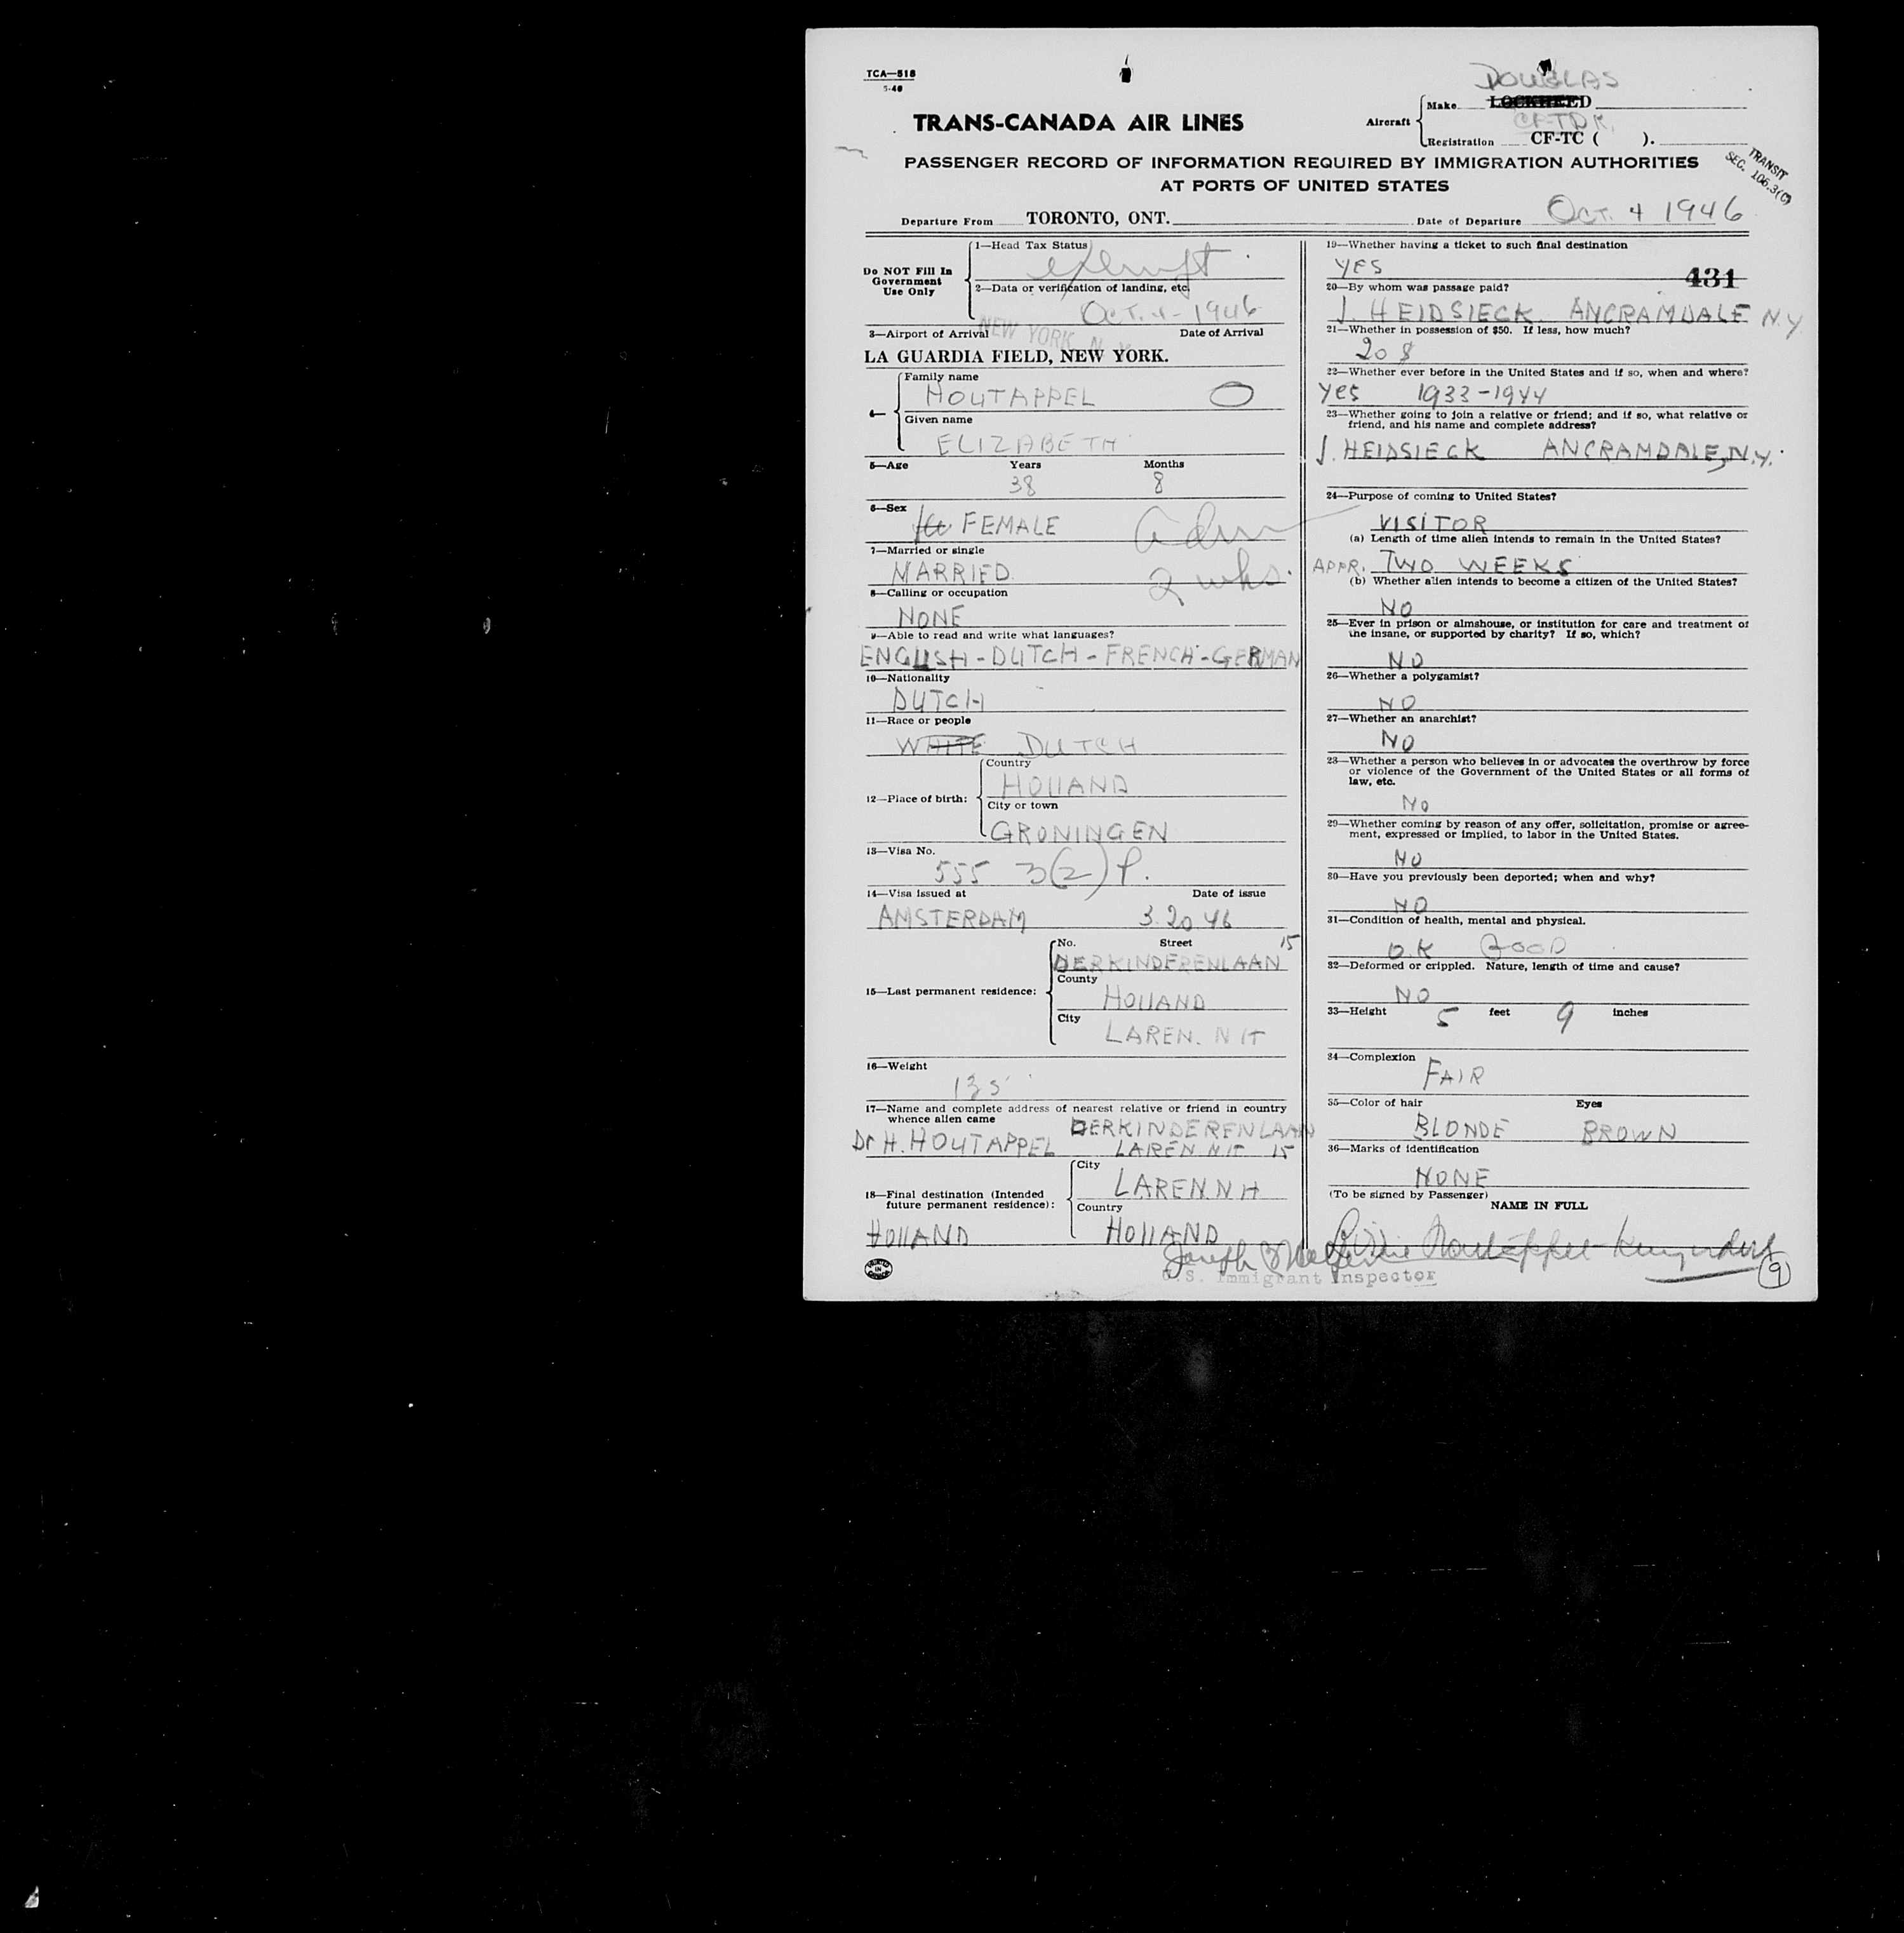 TCA—518
5-46
DOUGLAS
Aircraft Make LOCKHEED
CF-TDK.
Registration CF-TC ( ).
TRANS-CANADA AIR LINES
PASSENGER RECORD OF INFORMATION REQUIRED BY IMMIGRATION AUTHORITIES
AT PORTS OF UNITED STATES
TRANSIT
SEC. 106.3(C)
Departure From TORONTO, ONT. Date of Departure OCT. 4 1946
Do NOT Fill In
Government
Use Only
1—Head Tax Status
exempt
2—Data or verification of landing, etc.
OCT. 4 - 1946
NEW YORK N. Y.
3—Airport of Arrival Date of Arrival
LA GUARDIA FIELD, NEW YORK.
4—
Family name
HOUTAPPEL
Given name
ELIZABETH
5—Age Years Months
38 8
6—Sex
FEMALE Adm
7—Married or single
MARRIED 2 wks.
8—Calling or occupation
NONE
9—Able to read and write what languages?
ENGLISH - DUTCH - FRENCH - GERMAN
10—Nationality
DUTCH
11—Race or people
WHITE DUTCH
12—Place of birth:
Country
HOLLAND
City or town
GRONINGEN
13—Visa No.
555 3(2) P.
14—Visa issued at Date of issue
AMSTERDAM 3.20 46
15—Last permanent residence:
No. Street 15
DERKINDERENLAAN
County
HOLLAND
City
LAREN. N H
16—Weight
135
17—Name and complete address of nearest relative or friend in country
whence alien came
DERKINDERENLAAN
Dr H. HOUTAPPEL LAREN N H 15
18—Final destination (Intended
future permanent residence):
City
LAREN. N H
Country
HOLLAND HOLLAND
PRINTED IN CANADA
19—Whether having a ticket to such final destination
YES 431
20—By whom was passage paid?
J. HEIDSIECK ANCRAMDALE N.Y.
21—Whether in possession of $50. If less, how much?
20 $
22—Whether ever before in the United States and if so, when and where?
YES 1933-1944
23—Whether going to join a relative or friend; and if so, what relative or
friend, and his name and complete address?
J. HEIDSIECK ANCRAMDALE, N.Y.
24—Purpose of coming to United States?
VISITOR
(a) Length of time alien intends to remain in the United States?
APPR. TWO WEEKS
(b) Whether alien intends to become a citizen of the United States?
NO
25—Ever in prison or almshouse, or institution for care and treatment of
the insane, or supported by charity? If so, which?
NO
26—Whether a polygamist?
NO
27—Whether an anarchist?
NO
28—Whether a person who believes in or advocates the overthrow by force
or violence of the Government of the United States or all forms of
law, etc.
NO
29—Whether coming by reason of any offer, solicitation, promise or agree-
ment, expressed or implied, to labor in the United States.
NO
30—Have you previously been deported; when and why?
NO
31—Condition of health, mental and physical.
O.K GOOD
32—Deformed or crippled. Nature, length of time and cause?
NO
33—Height 5 feet 9 inches
34—Complexion
FAIR
35—Color of hair Eyes
BLONDE BROWN
36—Marks of identification
NONE
(To be signed by Passenger)
NAME IN FULL
Joseph
Houtappel
U.S. Immigrant Inspector
9